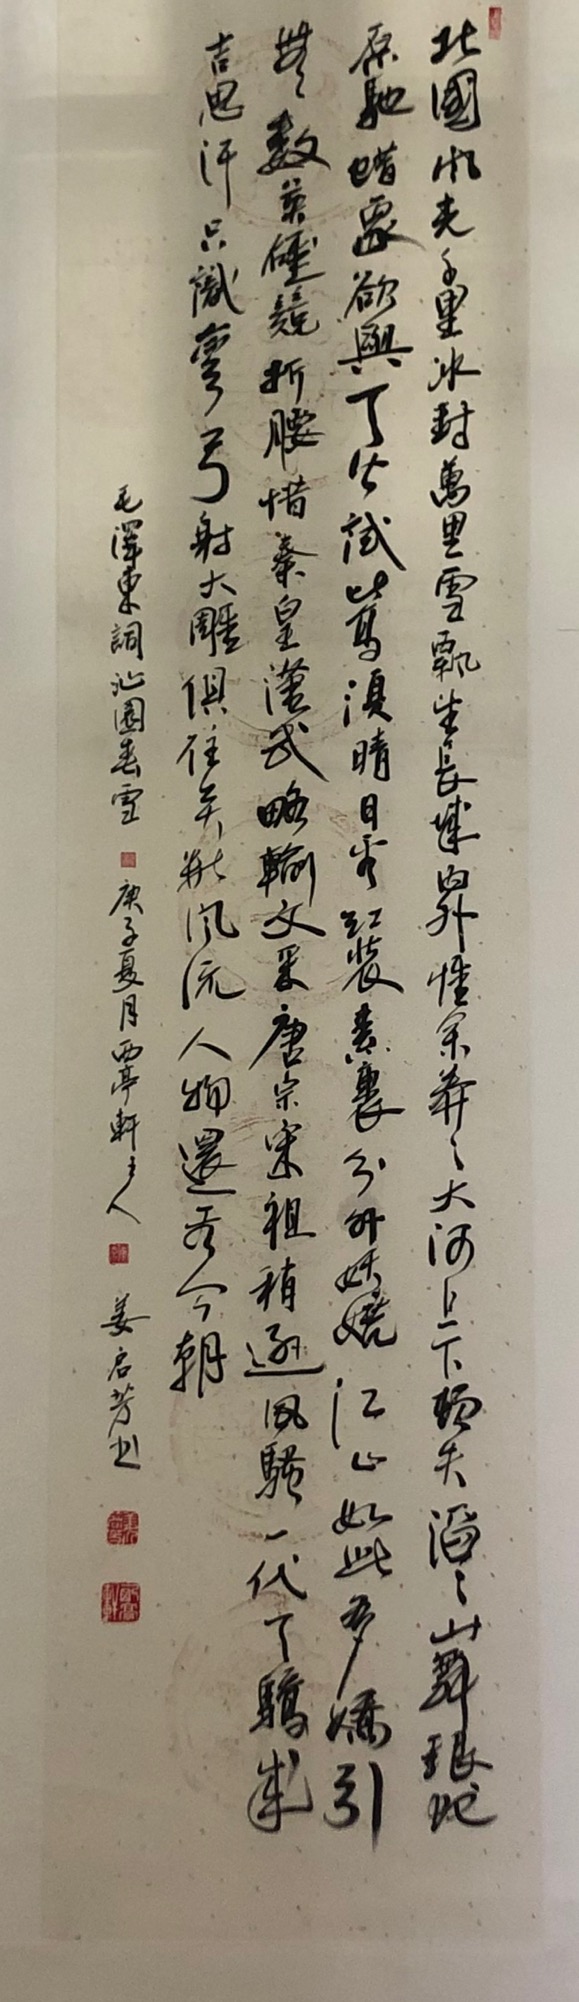 北國风光千里冰封萬里雪飄望長城內外惟余莽々大河上下頓失滔々山舞銀蛇
原馳蜡象欲與天公試比高須晴日看红裝素裹分外妖嬈江山如此多嬌引
無數英雄競折腰惜秦皇漢武略輸文采唐宗宋祖稍遜風騷一代天驕成
吉思汗只識彎弓射大雕俱往矣數風流人物還看今朝
毛澤東詞沁園春雪 庚子夏月西亭軒主人 姜启芳书